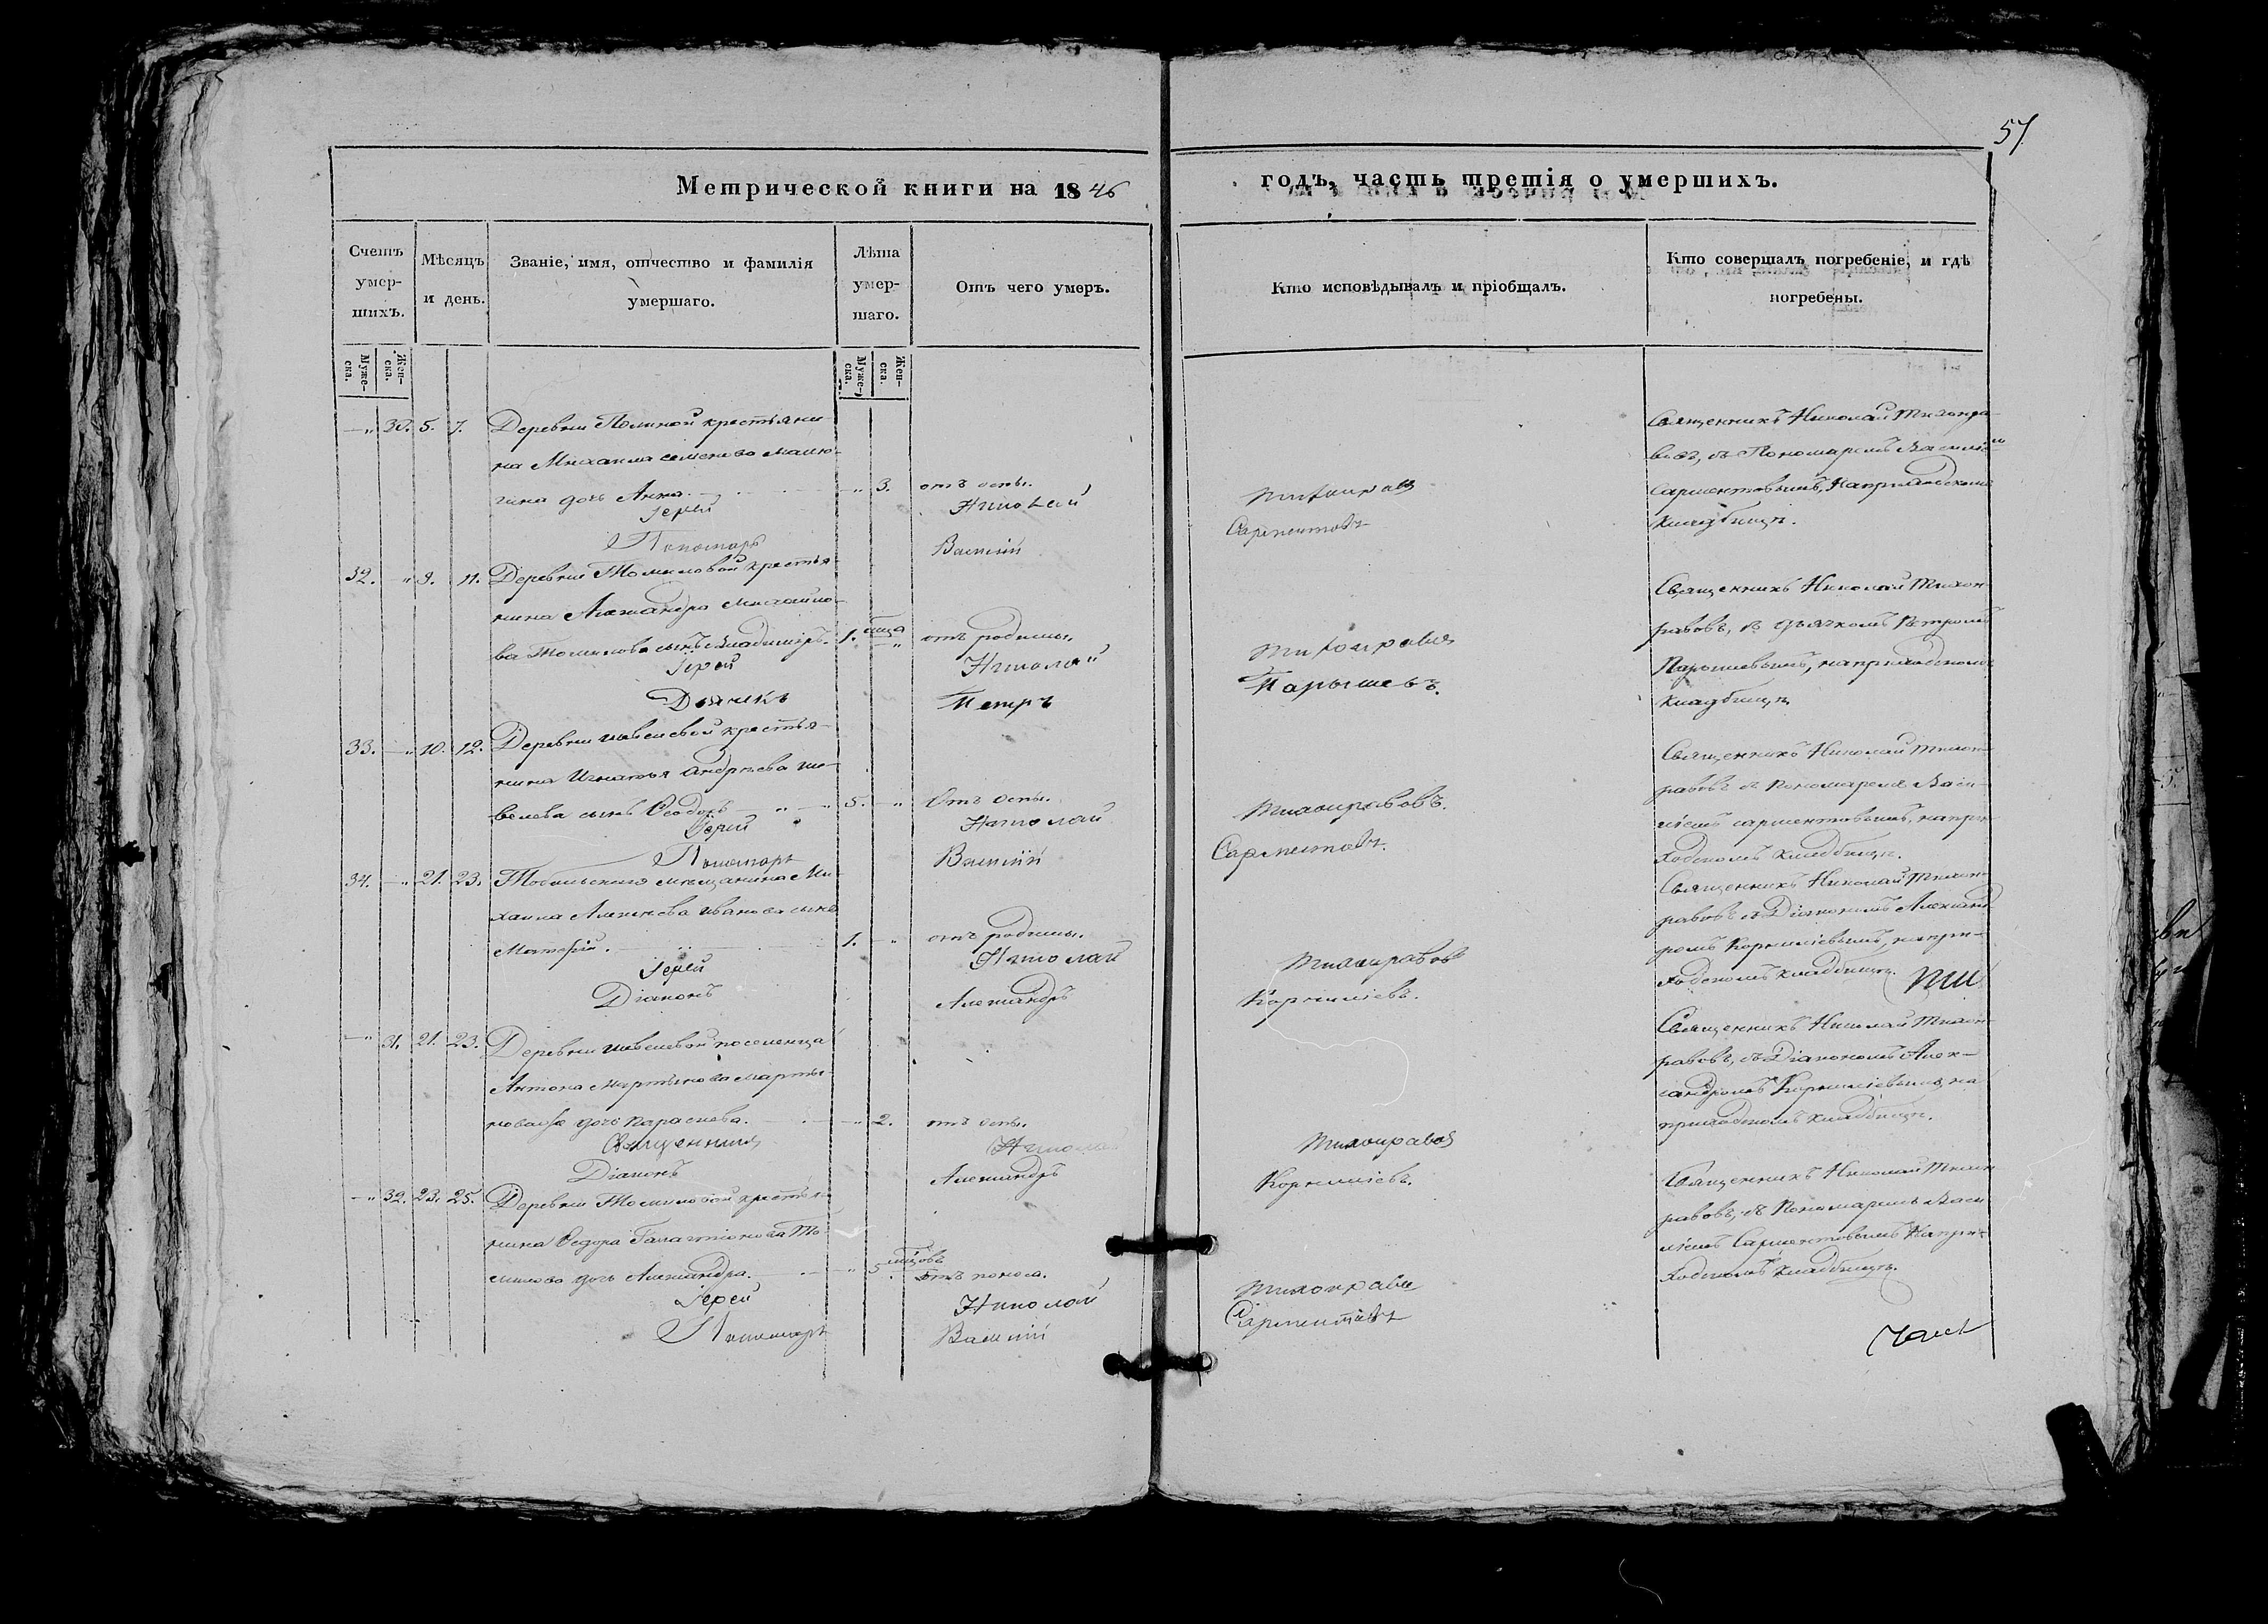 57.
Метрической книги на 1846 годъ, часть третія о умершихъ.
Счетъ умер-
шихъ.
Муже-
ска.
Жен-
ска.
Мѣсяцъ
и день.
Званіе, имя, отчество и фамилія
умершаго.
Лѣта
умер-
шаго.
Муже-
ска.
Жен-
ска.
Отъ чего умеръ.
Кто исповѣдывалъ и пріобщалъ.
Кто совершалъ погребеніе, и гдѣ
погребены.
30. 5. 7. Деревни крестьяни-
на Михаила Семенова
дочь Анна. 3. отъ оспы.
Іерей Николай Тихонравовъ
Пономарь Василій Сарментовъ
Священникъ Николай Тихонра-
вовъ, съ Пономаремъ Василіемъ
Сарментовымъ, на приходскомъ
кладбищѣ.
32. 9. 11. Деревни Томиловой крестья-
нина Александра Михайло-
ва Томилова сынъ Владиміръ. 1. отъ родимца.
Іерей Николай Тихонравовъ
Дьячекъ Петръ Парышевъ.
Священникъ Николай Тихон-
равовъ, съ дьячкомъ Петромъ
Парышевымъ, на приходскомъ
кладбищѣ
33. 10. 12. Деревни Шевелевой крестья-
нина Игнатья Андреева Ше-
велева сынъ Ѳеодоръ 5. Отъ оспы.
Іерей Николай Тихонравовъ.
Пономарь Василій Сарментовъ.
Священникъ Николай Тихон-
равовъ съ Пономаремъ Васи-
ліемъ Сарментовымъ, на при-
ходскомъ кладбищѣ.
34. 21. 23. Тобольскаго мещанина Ми-
хаила Алексѣева Иванова сынъ
1. отъ родимца.
Іерей Николай Тихонравовъ
Діаконъ Александръ Корниліевъ.
Священникъ Николай Тихон-
равовъ съ Діакономъ Александ
ромъ Корниліевымъ, на при-
ходскомъ кладбищѣ.
31. 21. 23. Деревни Шевелевой поселенца
Антона Мартынова Марты-
нова дочь Параскева. 2. отъ оспы.
Священникъ Николай Тихонравовъ
Діаконъ Александръ Корниліевъ.
Священникъ Николай Тихон
равовъ, съ Діакономъ Алек-
сандромъ Корниліевымъ, на
приходскомъ кладбищѣ.
32. 23. 25. Деревни Томиловой крестья-
нина Ѳедора Галактіонова То-
милова дочь Александра. 5 отъ поноса.
Іерей Николай Тихонравовъ
Пономарь Василій Сарментовъ
Священникъ Николай Тихон
равовъ, съ Пономаремъ Васи
ліемъ Сарментовымъ на при-
ходскомъ кладбищѣ.